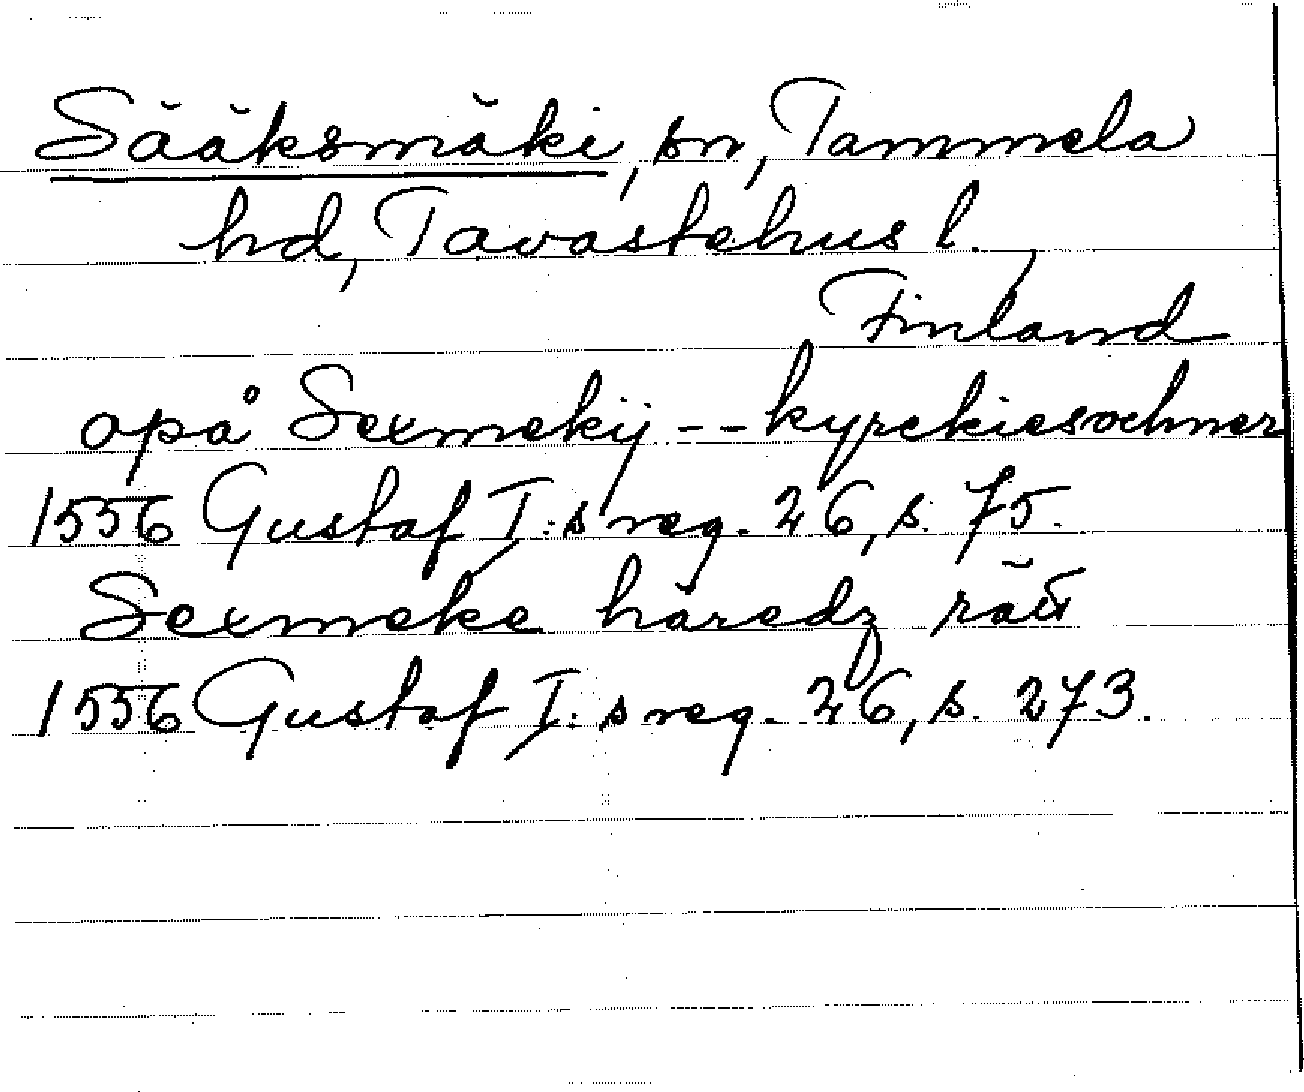 Sääksmäki, sn, Tammela
hd, Tavastehus l.,
Finland
opå Sexmekij -- kyrckiesochner
1556 Gustaf I:s reg. 26, s. 75.
Sexmeke häredz rätt
1556 Gustaf I:s reg. 26, s. 273.